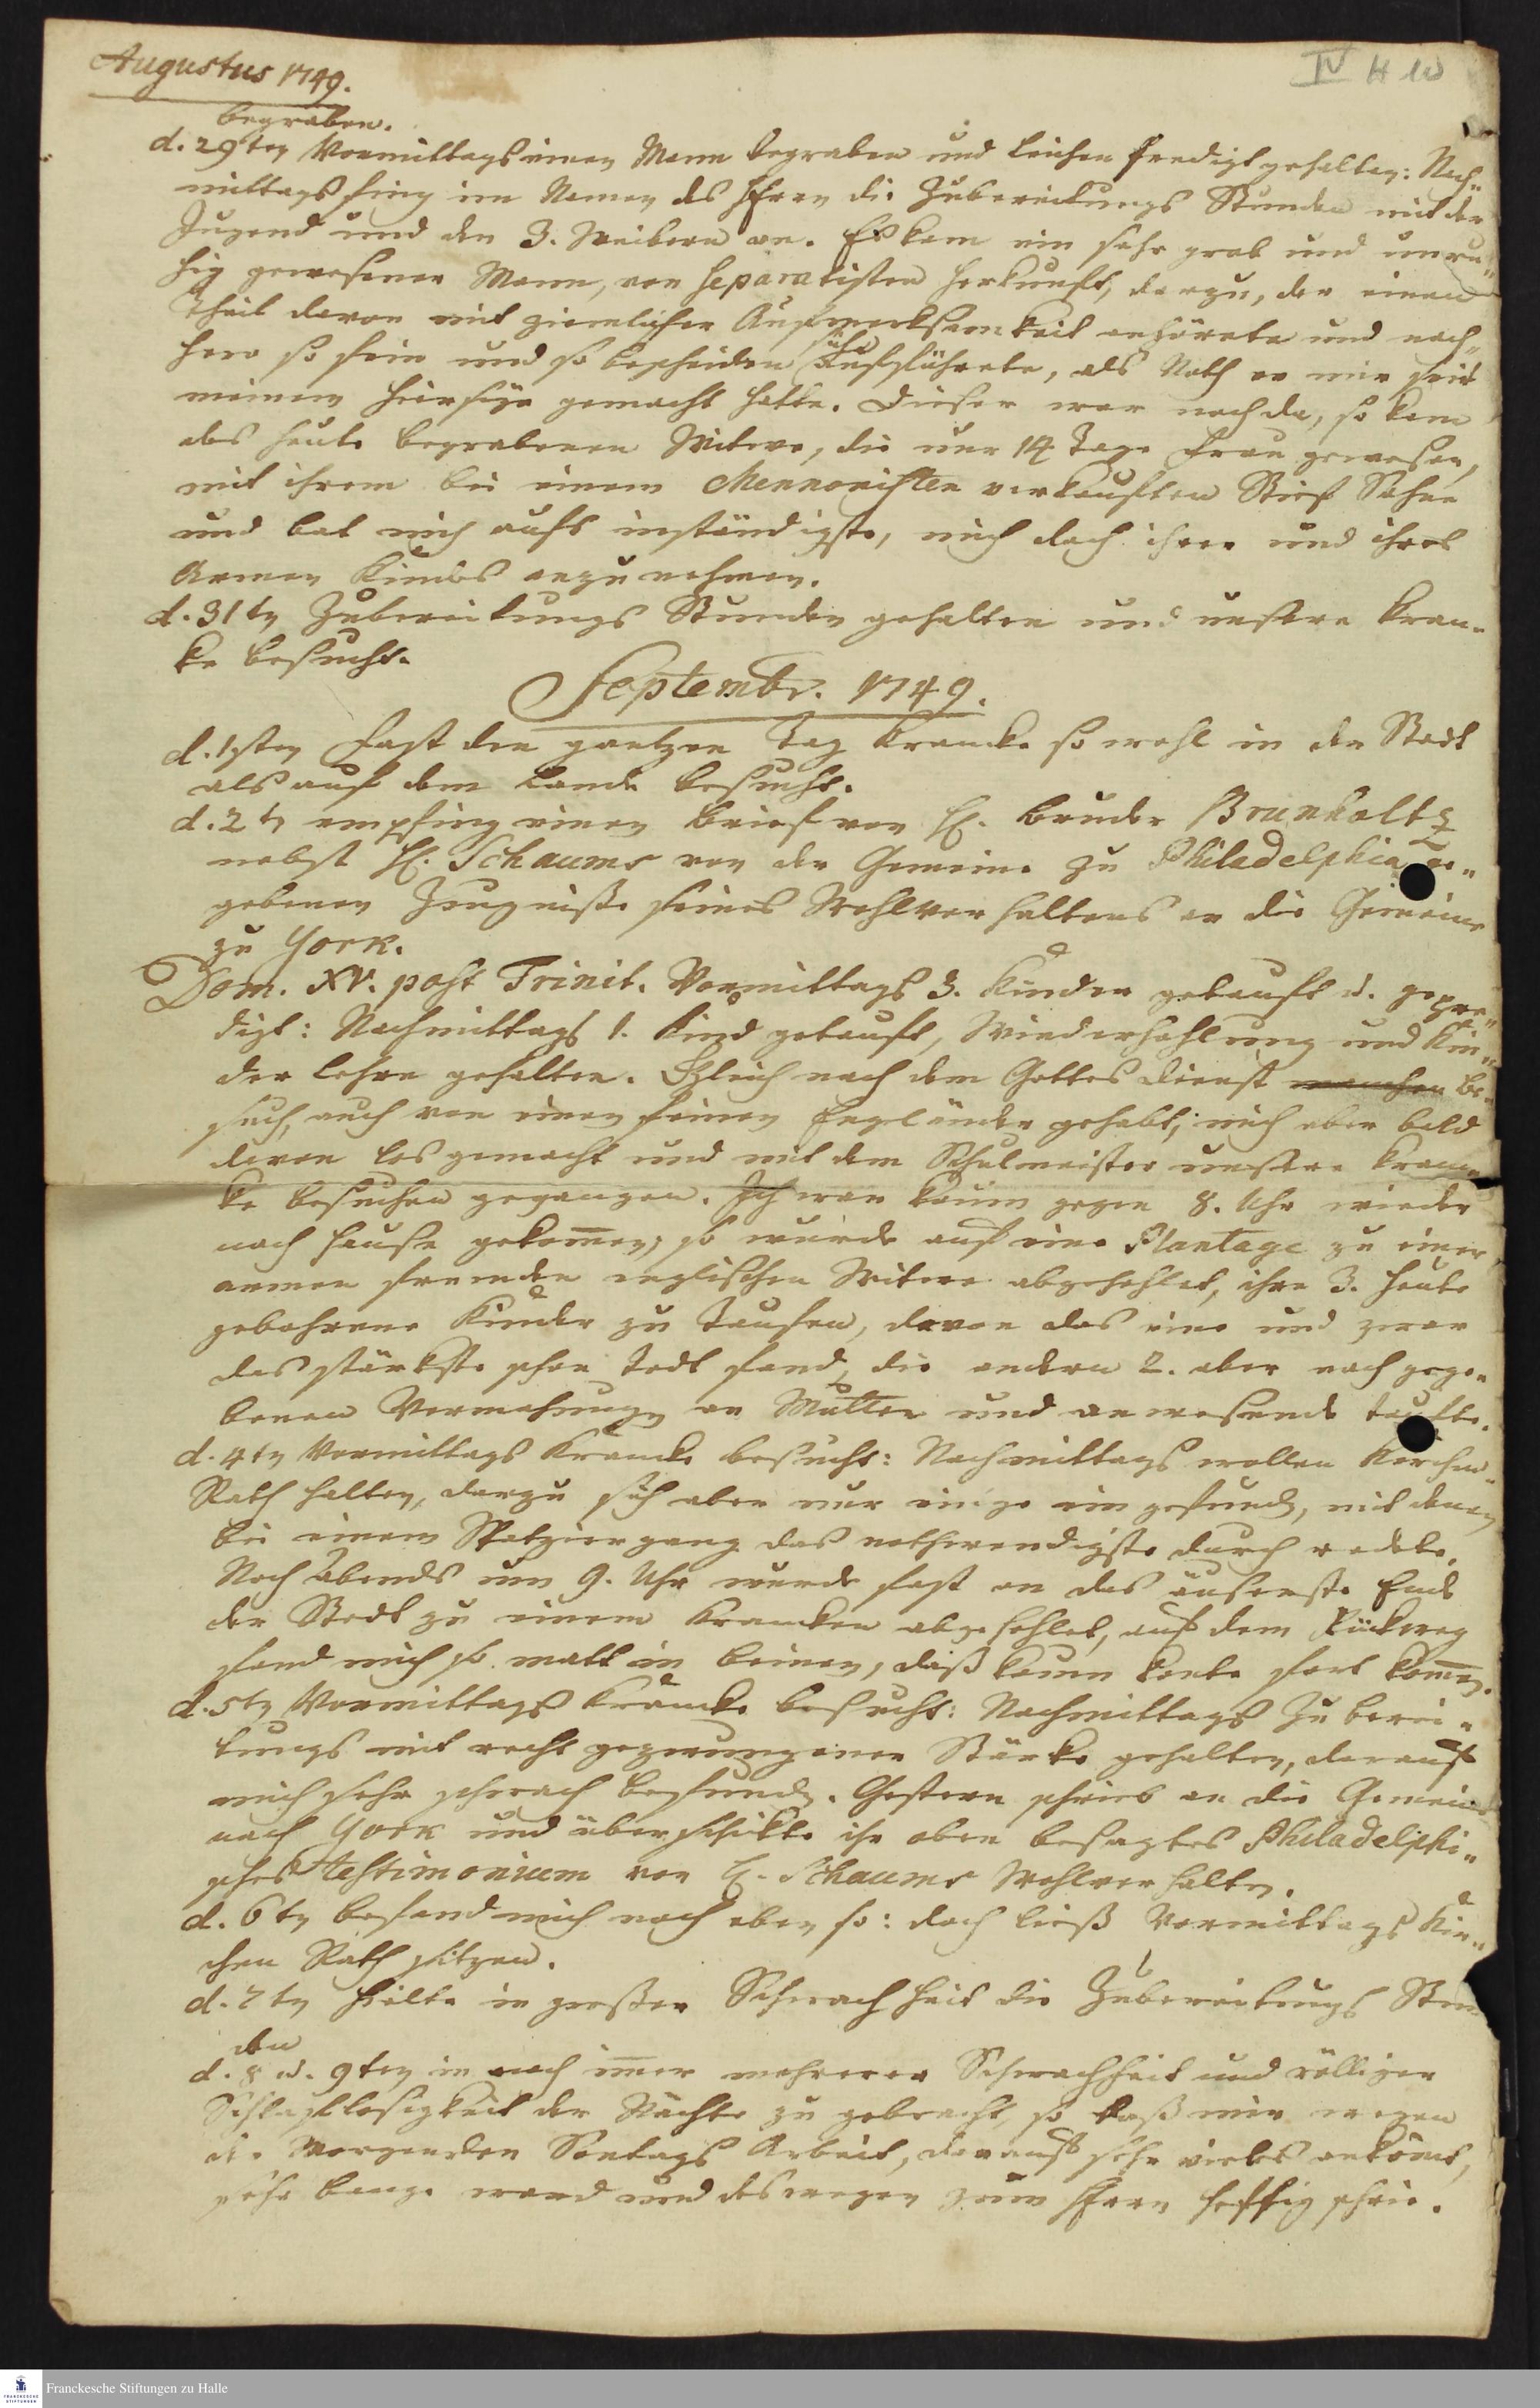 Augustus 1749.
IV H 10
begraben.
d. 29ten Vormittags einen Mann begraben und Leichen Predigt gehalten: Nach-
mittags fing im Namen des Herrn die Zubereitungs Stunden mit der
Jugend und den 3. Weibern an. Es kam ein sehr grob und unru-
hig gewesener Mann, von Separatisten Herkunft, darzu, der einen
Theil davon mit ziemlicher Aufmerksamkeit anhörete und nach-
hero so fein und so bescheiden sich aufführete, als Noth er mir seit
meinem Hierseyn gemacht hatte. Dieser war noch da, so kam
des heute begrabenen Witwe, die nur 14 Tage Frau gewesen,
mit ihrem bei einem Mennonisten verkauften Stief Sohne
und bat mich aufs inständigste, mich doch ihrer und ihres
Armen Kindes anzunehmen.
d. 31tn Zubereitungs Stunden gehalten und unsere Kran-
ke besucht.
Septembr. 1749.
d. 1sten Fast den gantzen Tag Krancke so wohl in der Stadt
als auf dem Lande besucht.
d. 2tn empfing einen Brief von H. Bruder Brunholtz
nebst H. Schaums von der Gemeine zu Philadelphia ge-
gebenen Zeugnisse seines Wohlverhaltens an die Gemeine
zu York.
Dom. XV. post Trinit. Vormittags 3. Kinder getauft u. gepre-
digt: Nachmittags 1. Kind getauft, Wiederhohlung und Kin-
der Lehre gehalten. Gleich nach dem Gottes Dienst be-
such, auch von einen feinen Engeländer gehabt, mich aber bald
davon los gemacht und mit dem Schulmeister unsere Kran-
ke besuchen gegangen. Ich war kaum gegen 8. Uhr wieder
nach Hause gekommen, so wurde auf eine Plantage zu einer
armen fremden englischen Witwe abgehohlet, ihre 3. heute
gebohrene Kinder zu Taufen, davon das eine und zwar
das stärkste schon todt fand, die andern 2. aber nach gege-
benen Vermahnung an Mutter und anwesende taufte.
d. 4tn Vormittags Krancke besucht: Nachmittags wollen Kirchen
Rath halten, darzu sich aber nur einige ein gefunden, mit denen
bei einem Spatziergang das nothwendigste durch redete.
Noch Abends um 9. Uhr wurde fast an das äuserste Ende
der Stadt zu einem Krancken abgehohlet, auf dem Rückweg
fand mich so matt in Beinen, daß kaum konte fort kommen.
d. 5tn Vormittags Krancke besucht: Nachmittags Zuberei-
tungs mit recht gezwungener Stärke gehalten, darauf
mich sehr schwach befunden. Gestern schrieb an die Gemeine
nach York und überschickte ihr oben besagtes Philadelphi-
sches Testimonium von H. Schaums Wohlverhalten.
d. 6tn befand mich noch eben so: doch ließ Vormittags Kir-
chen Rath sitzen.
d. 7tn Hielte in großer Schwachheit die Zubereitungs Stun-
den
d. 8 u. 9ten in noch immer mehrerer Schwachheit und völliger
Schlaflosigkeit der Nächte zu gebracht, so daß mir wegen
der Morgenden Sontags Arbeit, darauf sehr vieles ankommt,
sehr bange ward und deswegen zum Herrn hefftig schrie.
Franckesche Stiftungen zu Halle